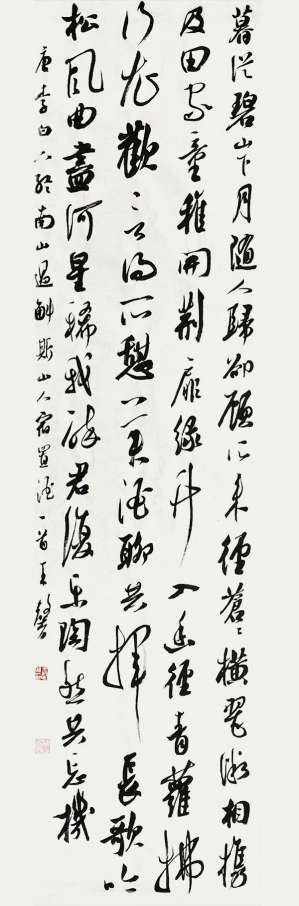 暮從碧山下月隨人歸卻顧所來徑蒼〻橫翠微相攜
及田家童稚開荊扉綠竹入幽徑青蘿拂
行衣歡言得所憩美酒聊共揮長歌吟
松風曲盡河星稀我醉君復樂陶然共忘機
唐李白下終南山過斛斯山人宿置酒一首王